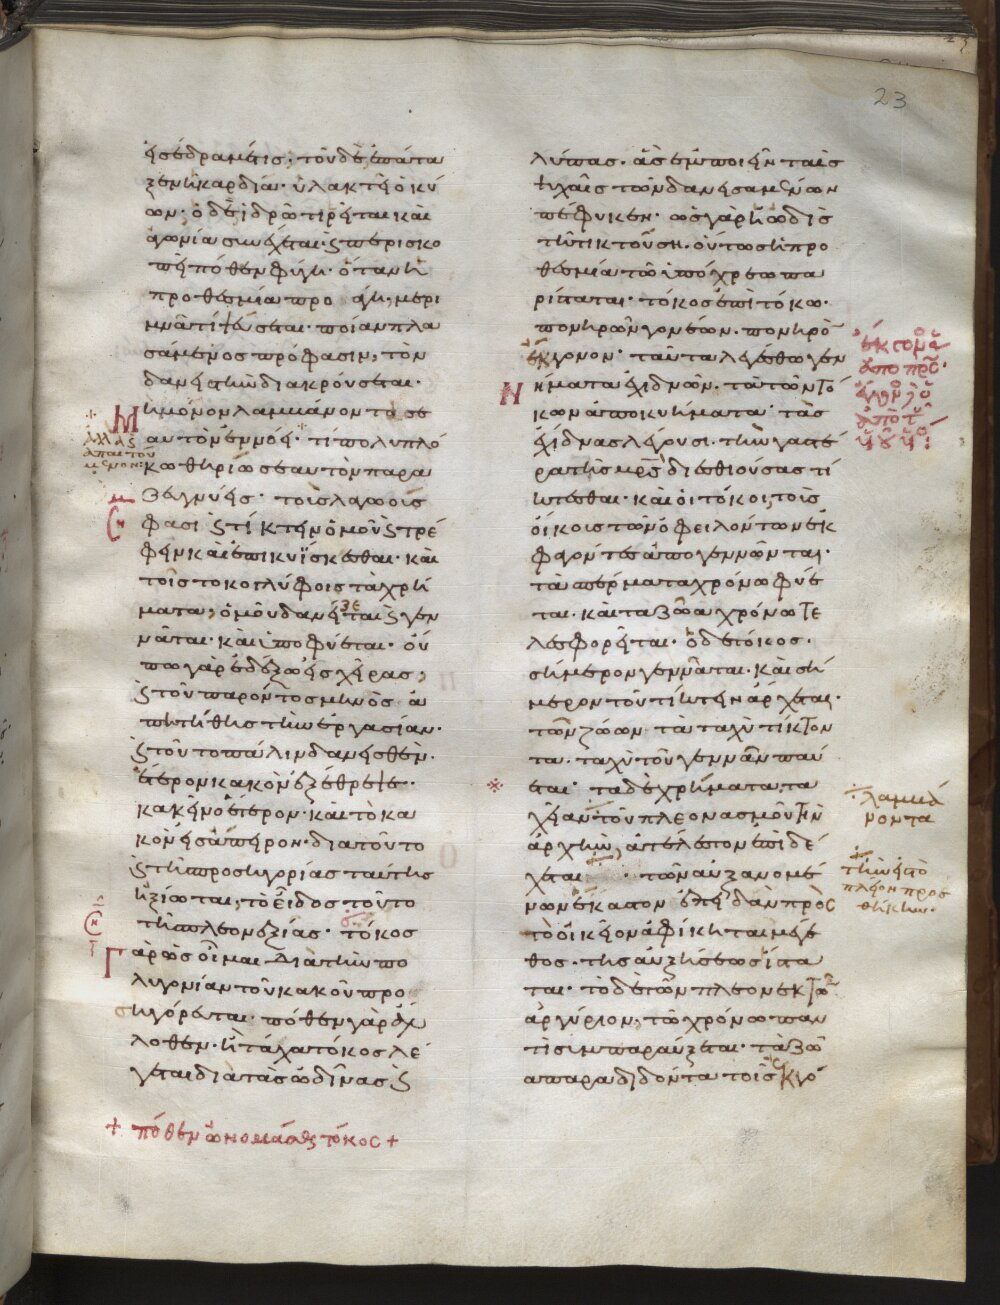 εἰσέδραμέ τις· τοῦ δὲ ἐπάτα
ξεν ἡ καρδία· ὑλακτεῖ ὁ κύ
ων· ὁ δὲ ἱδρῶτι ῥεῖται καὶ
ἀγωνία συνέχεται· καὶ περισκο
πεῖ πόθεν φύγη· ὅταν ἡ
προθεσμία προ είη, μερι
μνᾶ τί ψεύσεται· ποίαν πλα
σάμενος πρόφασιν, τὸν
δανειστὴν διακρούσεται·
Μὴ μόνον λαμβάνοντα σε
αυτὸν ἐννόει· τί πολυτό
κω θηρίω σεαυτὸν παρα
ζευγνύεις· τοὺς λαγωούς
φασι καὶ τίκτειν ὁμοῦ καὶ τρέ
φειν καὶ ἐπικυΐσκεσθαι· καὶ
τοῖς τοκογλύφοις τὰ χρή
ματα, ὁμοῦ δανείζεται καὶ γεν
νᾶται· καὶ ὑποφύεται· οὔ
πω γὰρ ἐδέξω εἰς χεῖρας,
καὶ τοῦ παρόντος μηνὸς ἀ
πητήθης τὴν ἐργασίαν·
καὶ τοῦτο πάλιν δανεισθὲν·
ἕτερον κακὸν ἐξέθρεψε·
κακεῖνο ἕτερον· καὶ τὸ κα
κὸν εἰς ἄπειρον· διὰ τοῦτο
καὶ τῆς προσηγορίας ταύτης
ἠξίωται, τὸ εἶδος τοῦτο
τῆς πλεονεξίας· τόκος
Γὰρ ὡς οἶμαι διὰ τὴν πο
λυγονίαν τοῦ κακοῦ προ
σηγόρευται· πόθεν γὰρ ἄλ
λοθεν· ἢ τάχα τόκος λέ
γεται διὰ τὰς ὠδῖνας καὶ
+ πόθεν ὠνομάσθη τόκος +
ἀλλὰ καὶ
ἀπαιτού
μενον:
23
λύπας· ἃς ἐμποιεῖν ταῖς
ψυχαῖς τῶν δανεισαμένων
πέφυκεν· ὡς γὰρ ἡ ὠδὶς
τῆ τικτούση· οὕτως ἡ προ
θεσμία τῶ ὑπόχρεω πα
ρίσταται· τόκος ἐπὶ τόκω·
πονηρῶν γονέων· πονηρὸ
ἔκγονον· ταῦτα λεγέσθω γεν
Νήματα ἐχιδνῶν· τὰ τῶν τό
κων ἀποκυήματα· τὰς
ἐχίδνας λέγουσι· τὴν γαστέ
ρα τῆς μρς διεσθιούσας τί
κτεσθαι· καὶ οἱ τόκοι, τοὺς
οἴκους τῶν ὀφειλόντων ἐκ
φαγόντες ἀπογεννῶνται·
τὰ σπέρματα χρόνω φύε
ται· καὶ τὰ ζῶα χρόνω τε
λεσφορεῖται· ὁ δὲ τόκος·
σήμερον γεννᾶται· καὶ σή
μερον τοῦ τίκτειν ἄρχεται·
τῶν ζώων τὰ ταχὺ τίκτον
τα· ταχὺ τοῦ γεννᾶν παύ
εται· τὰ δὲ χρήματα, τα
χεῖαν τοῦ πλεονασμοῦ τὴν
ἀρχὴν, ἀτέλεστον ἐπιδέ
χεται · τῶν αὐξανομέ
νων ἕκαστον ἐπειδὰν πρὸς
τὸ οἰκεῖον ἀφίκηται μέγε
θος· τῆς αὐξήσεως ἵστα
ται· τὸ δὲ τῶν πλεονεκτῶν
ἀργύριον, τῶ χρόνω παν
τὶ συμπαραύξεται· τὰ ζῶ
α παραδιδόντα τοῖς ἐκγό
λαμβά
νοντα
τὴν εἰς τὸ
πλέον προσ
θήκην·